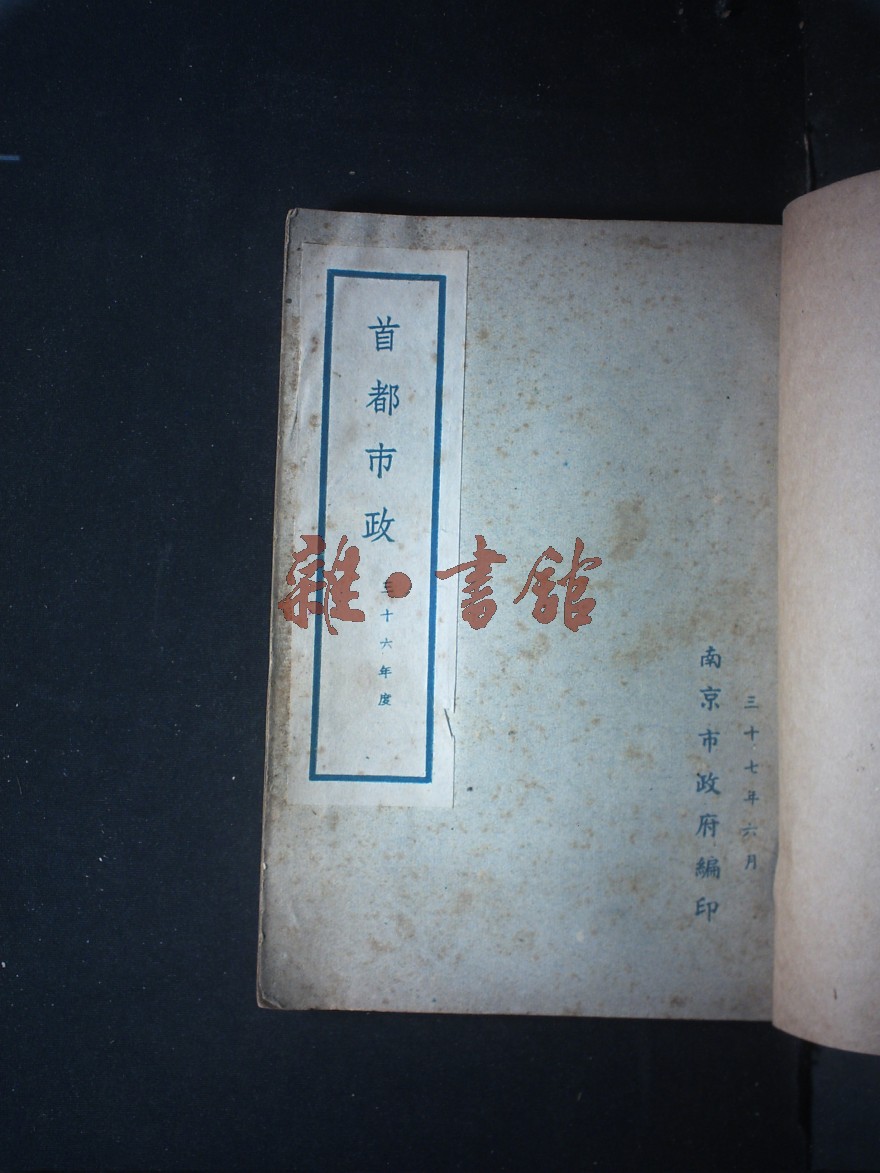 三十七年六月
南京市政府編印
首都市政
三十六年度
雜·書館